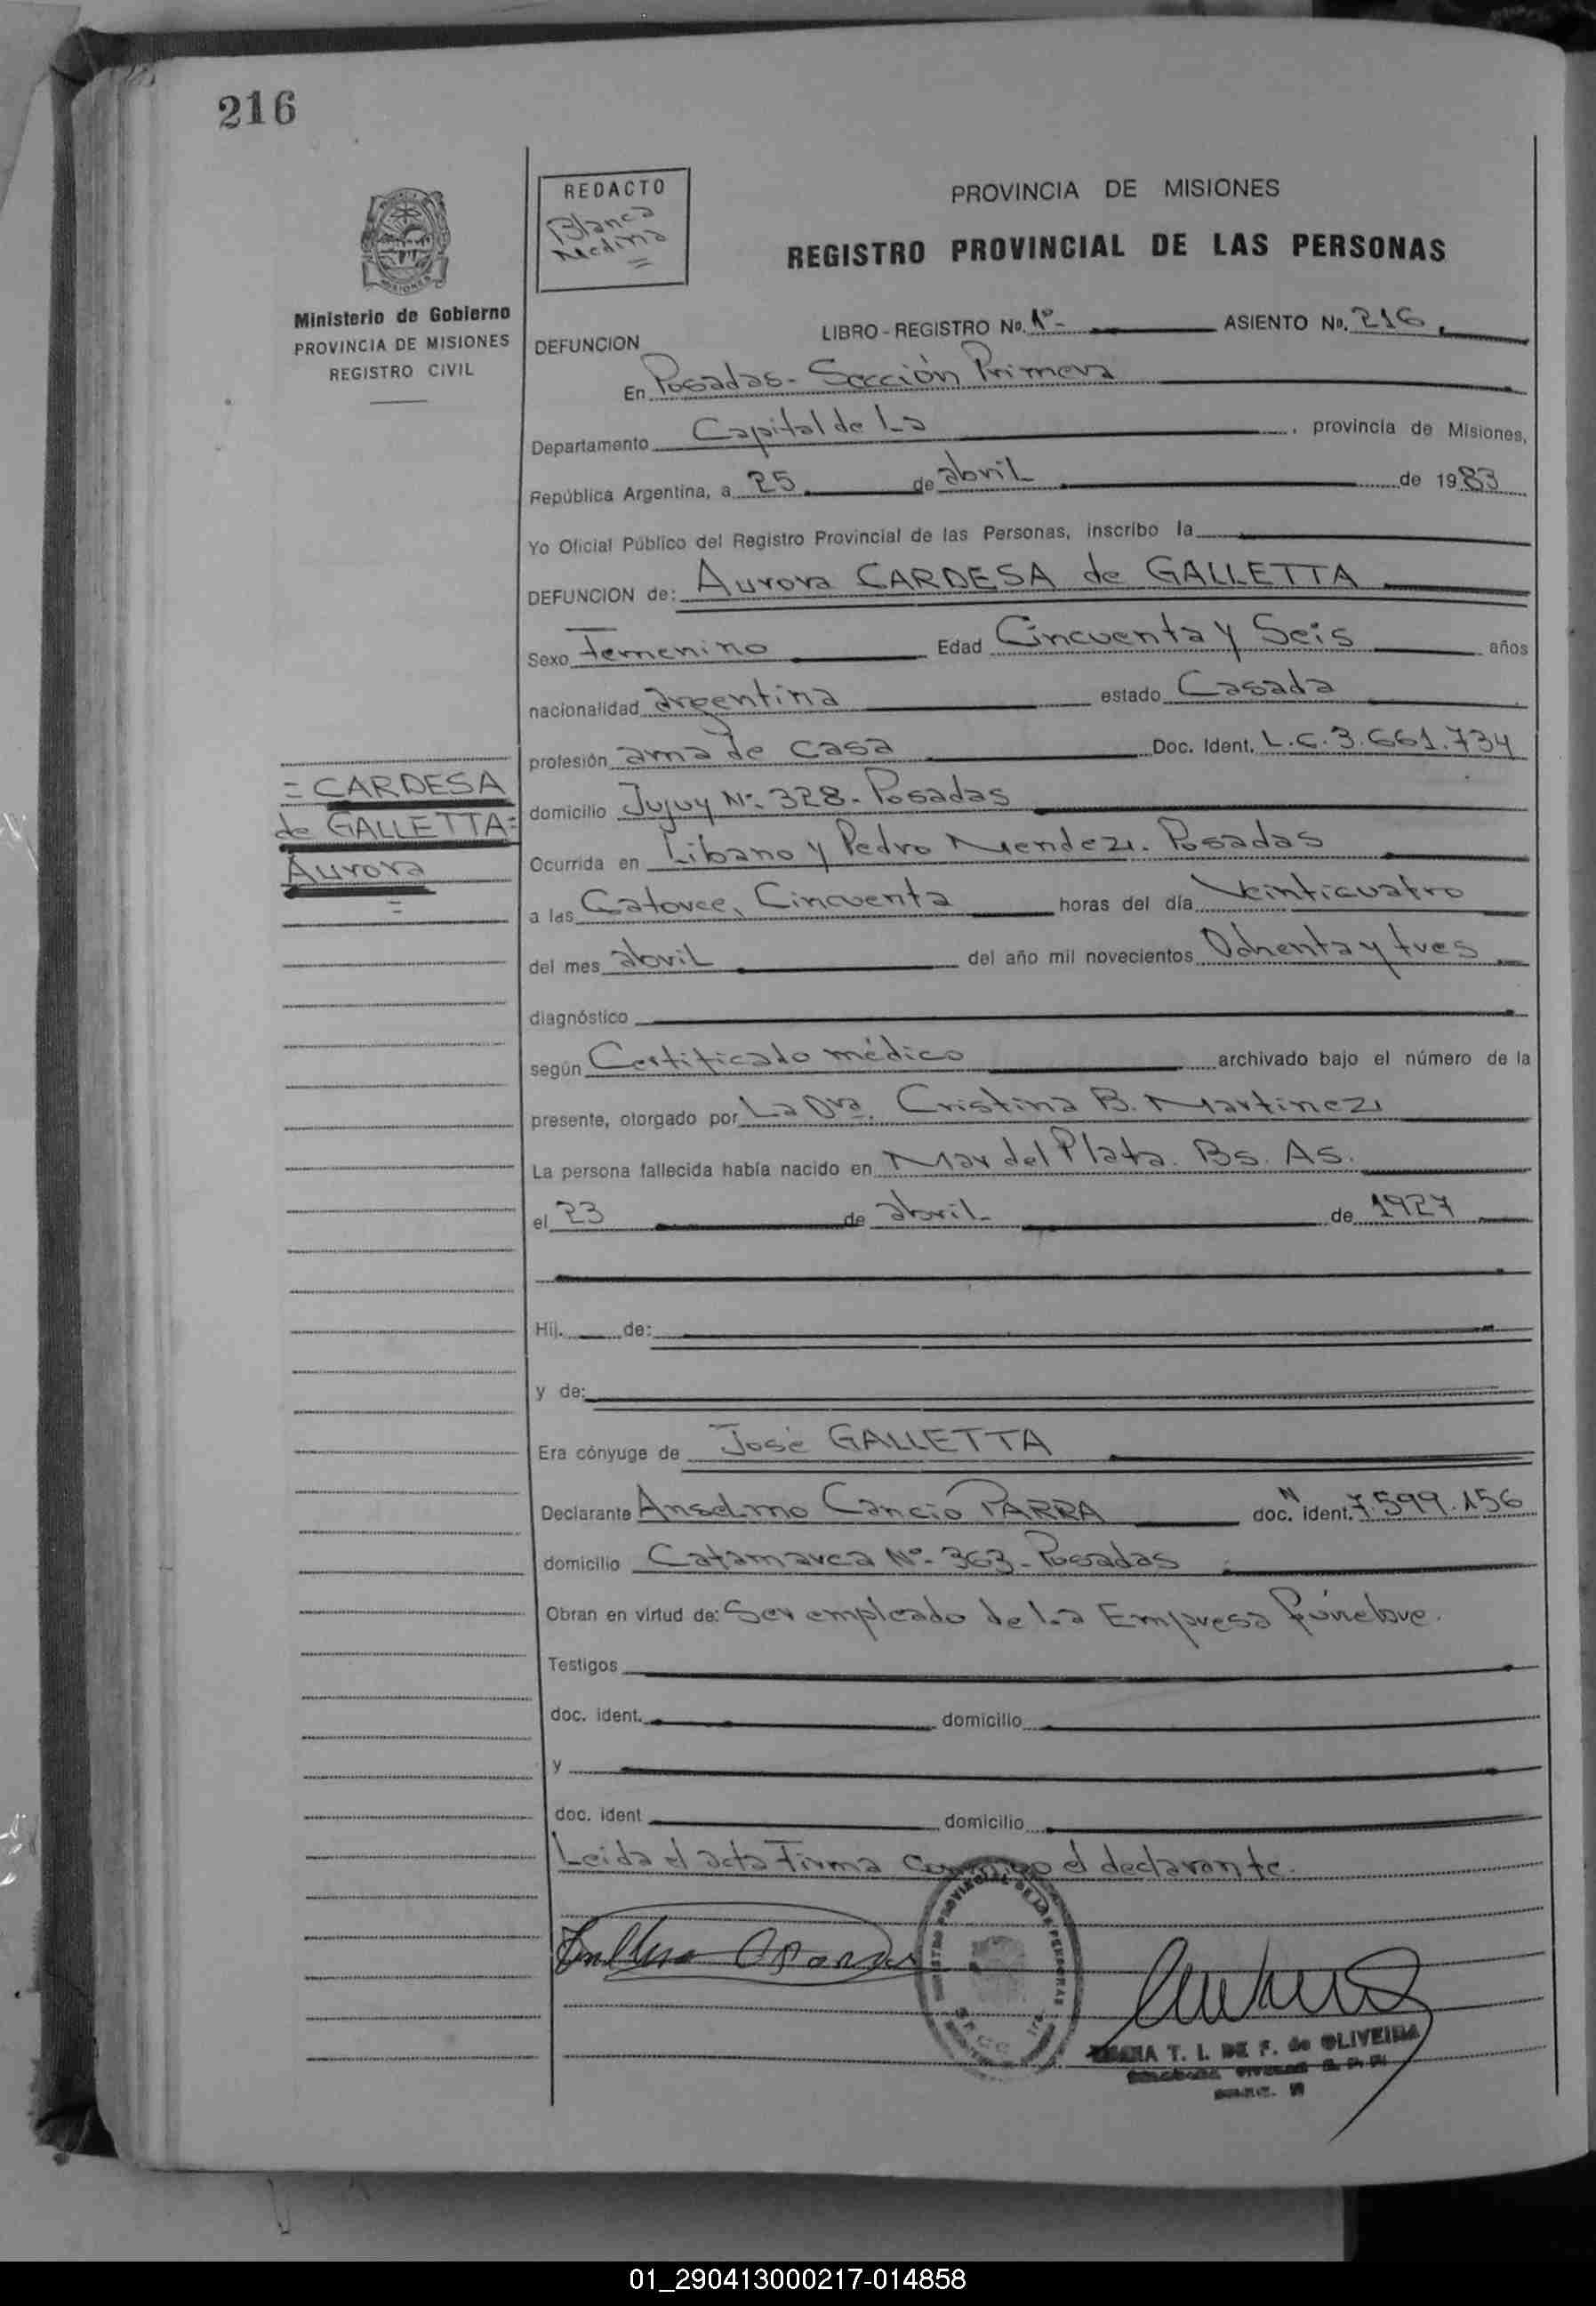 216
REDACTO
Blanca
Medina
Ministerio de Gobierno
PROVINCIA DE MISIONES
REGISTRO CIVIL
PROVINCIA DE MISIONES
REGISTRO PROVINCIAL DE LAS PERSONAS
DEFUNCION LIBRO - REGISTRO No. 1º- ASIENTO No. 216
En Posadas - Sección Primera
Departamento Capital de La , provincia de Misiones,
República Argentina, a 25 de abril de 1983
Yo Oficial Público del Registro Provincial de las Personas, inscribo la
DEFUNCION de: Aurora CARDESA de GALLETTA
Sexo Femenino Edad Cincuenta y Seis años
nacionalidad argentina estado Casada
profesión ama de casa Doc. Ident. L.C. 3.661.734
= CARDESA
de GALLETTA=
Aurora
=
domicilio Jujuy Nº 328 - Posadas
Ocurrida en Líbano y Pedro Mendez. Posadas
a las Catorce, Cincuenta horas del día Veinticuatro
del mes abril del año mil novecientos Ochenta y tres
diagnóstico
según Certificado médico archivado bajo el número de la
presente, otorgado por La Dra. Cristina B. Martinez
La persona fallecida había nacido en Mar del Plata. Bs. As.
el 23 de abril de 1927
Hij. de:
y de:
Era cónyuge de José GALLETTA
Declarante Anselmo Cancio PARRA doc. N ident. 7.599.156
domicilio Catamarca Nº- 363 - Posadas
Obran en virtud de: Ser empleado de la Empresa fúnebre.
Testigos
doc. ident. domicilio
y
doc. ident domicilio
Leida el acta Firma conmigo el declarante.
REGISTRO PROVINCIAL DE LAS PERSONAS
T. I. DE F. de OLIVEIRA
01_290413000217-014858